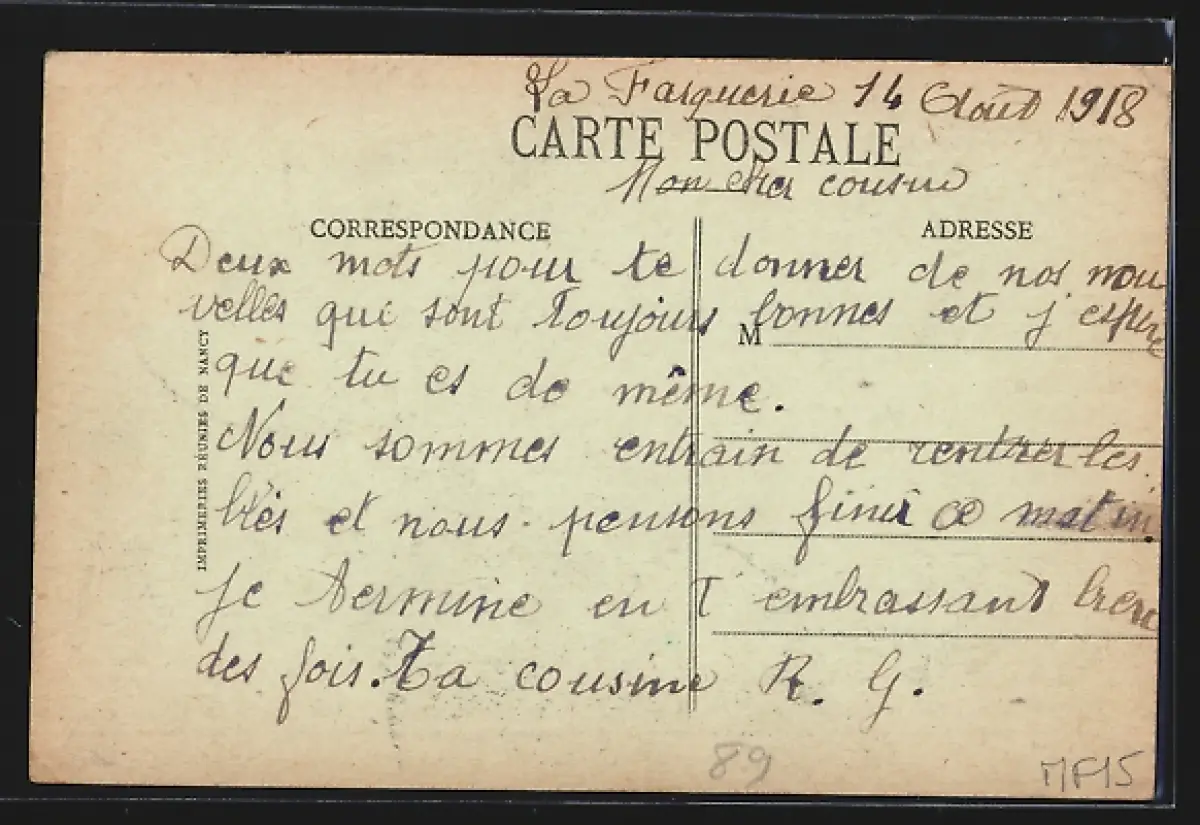 La Farguerie 14 Août 1918
CARTE POSTALE
Mon cher cousin
CORRESPONDANCE
ADRESSE
Deux mots pour te donner de nos nou
velles qui sont toujours bonnes et j espère
M
que tu es de même.
Nous sommes entrain de rentrer les
blés et nous pensons finir ce matin.
Je termine en t embrassant bien
des fois. Ta cousine R. G.
IMPRIMERIES RÉUNIES DE NANCY
89
MF15